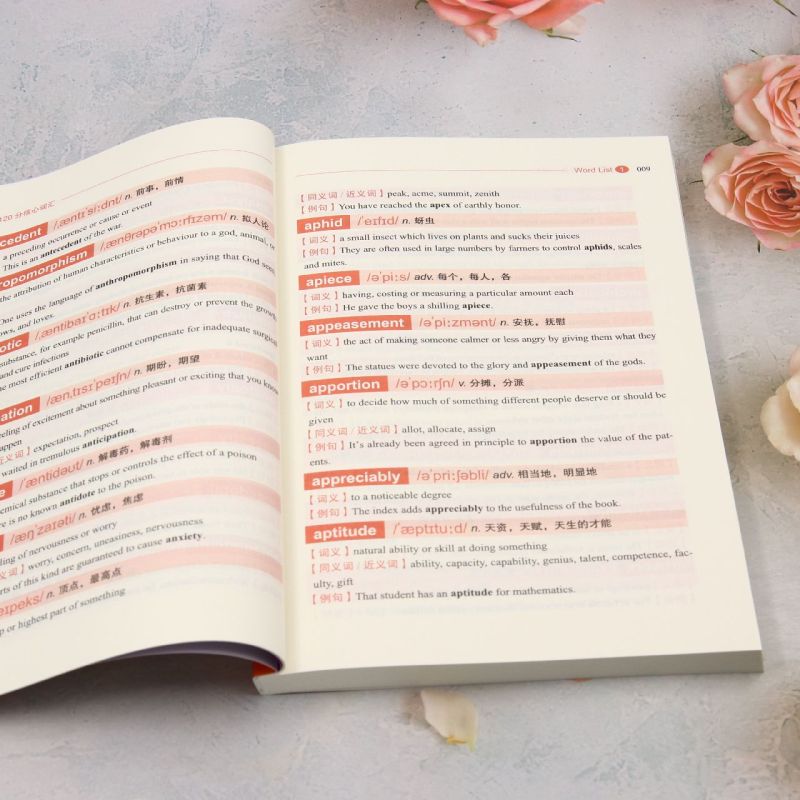 120 分核心词汇
cedent /ˌæntɪˈsiːdnt/ n. 前事，前情
a preceding occurrence or cause or event
This is an antecedent of the war.
ropomorphism /ˌænθrəpəˈmɔːrfɪzəm/ n. 拟人论
the attribution of human characteristics or behaviour to a god, animal, or
One uses the language of anthropomorphism in saying that God sees,
ows, and loves.
otic /ˌæntibaɪˈɑːtɪk/ n. 抗生素，抗菌素
substance, for example penicillin, that can destroy or prevent the growth
and cure infections
e most efficient antibiotic cannot compensate for inadequate surgical
ation /ˌænˌtɪsɪˈpeɪʃn/ n. 期盼，期望
eling of excitement about something pleasant or exciting that you know
appen
近义词】expectation, prospect
waited in tremulous anticipation.
e /ˈæntidəʊt/ n. 解毒药，解毒剂
emical substance that stops or controls the effect of a poison
re is no known antidote to the poison.
/æŋˈzaɪəti/ n. 忧虑，焦虑
ling of nervousness or worry
义词】worry, concern, uneasiness, nervousness
rts of this kind are guaranteed to cause anxiety.
eɪpeks/ n. 顶点，最高点
p or highest part of something
Word List 1 009
【同义词/近义词】peak, acme, summit, zenith
【例句】You have reached the apex of earthly honor.
aphid /ˈeɪfɪd/ n. 蚜虫
【词义】a small insect which lives on plants and sucks their juices
【例句】They are often used in large numbers by farmers to control aphids, scales
and mites.
apiece /əˈpiːs/ adv. 每个，每人，各
【词义】having, costing or measuring a particular amount each
【例句】He gave the boys a shilling apiece.
appeasement /əˈpiːzmənt/ n. 安抚，抚慰
【词义】the act of making someone calmer or less angry by giving them what they
want
【例句】The statues were devoted to the glory and appeasement of the gods.
apportion /əˈpɔːrʃn/ v. 分摊，分派
【词义】to decide how much of something different people deserve or should be
given
【同义词/近义词】allot, allocate, assign
【例句】It's already been agreed in principle to apportion the value of the pat-
ents.
appreciably /əˈpriːʃəbli/ adv. 相当地，明显地
【词义】to a noticeable degree
【例句】The index adds appreciably to the usefulness of the book.
aptitude /ˈæptɪtuːd/ n. 天资，天赋，天生的才能
【词义】natural ability or skill at doing something
【同义词/近义词】ability, capacity, capability, genius, talent, competence, fac-
ulty, gift
【例句】That student has an aptitude for mathematics.